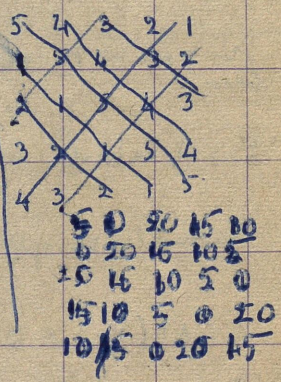 5 4 3 2 1
1 5 4 3 2
2 1 5 4 3
3 2 1 5 4
4 3 2 1 5
5 0 20 15 10
0 20 15 10 5
20 15 10 5 0
15 10 5 0 20
10 5 0 20 15